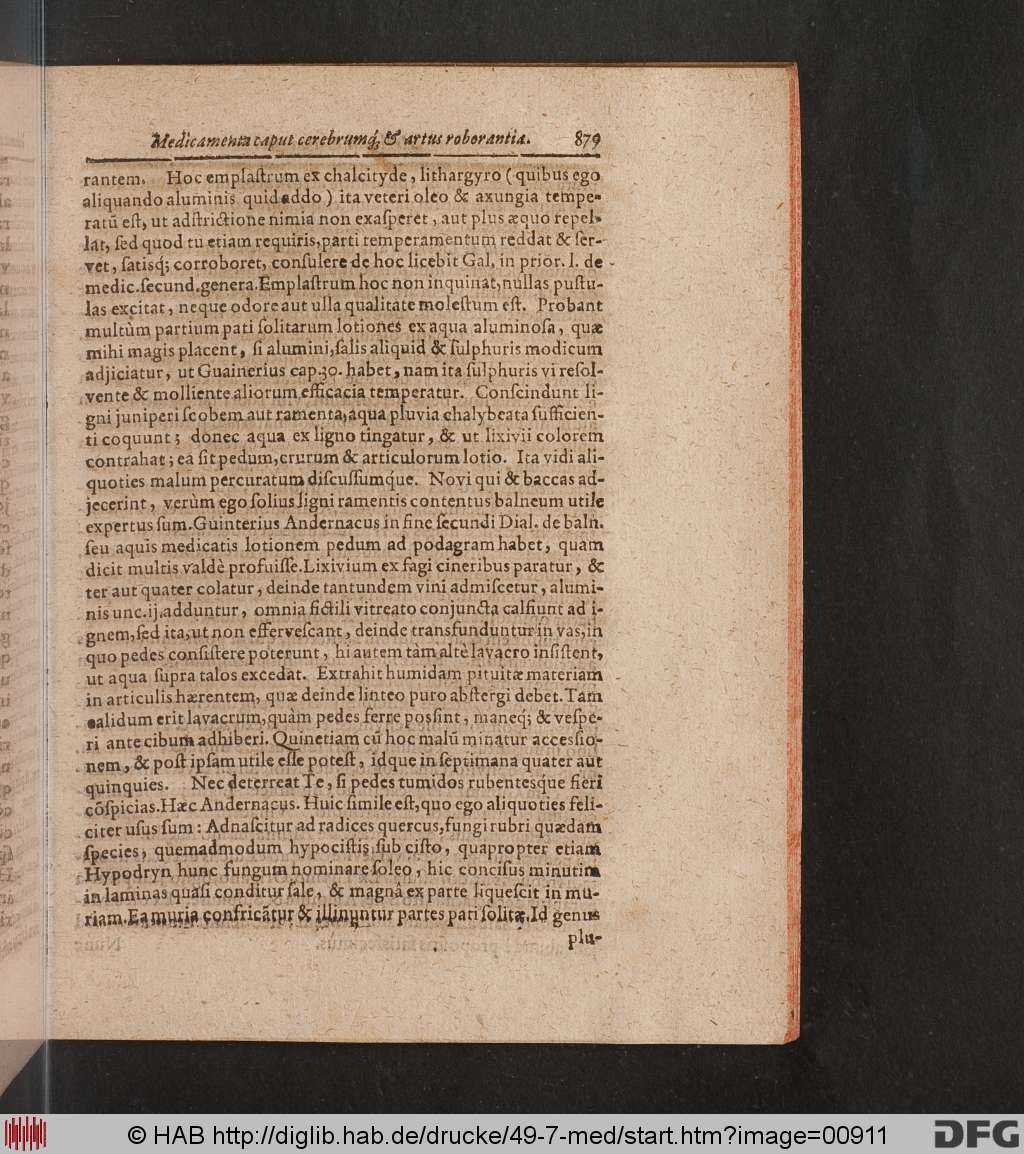 Medicamenta caput cerebrumq́; & artus roborantia. 879
rantem. Hoc emplaſtrum ex chalcityde, lithargyro (quibus ego
aliquando aluminis quid addo) ita veteri oleo & axungia tempe-
ratū eſt, ut adſtrictione nimia non exaſperet, aut plus æquo repel-
lat, ſed quod tu etiam requiris, parti temperamentum reddat & ſer-
vet, ſatisq́; corroboret, conſulere de hoc licebit Gal. in prior. l. de
medic. ſecund. genera. Emplaſtrum hoc non inquinat, nullas puſtu-
las excitat, neque odore aut ulla qualitate moleſtum eſt. Probant
multùm partium pati ſolitarum lotiones ex aqua aluminoſa, quæ
mihi magis placent, ſi alumini, ſalis aliquid & ſulphuris modicum
adjiciatur, ut Guainerius cap. 30. habet, nam ita ſulphuris vi reſol-
vente & molliente aliorum efficacia temperatur. Conſcindunt li-
gni juniperi ſcobem aut ramenta, aqua pluvia chalybeata ſufficien-
ti coquunt; donec aqua ex ligno tingatur, & ut lixivii colorem
contrahat; ea ſit pedum, crurum & articulorum lotio. Ita vidi ali-
quoties malum percuratum diſcuſſumq́ue. Novi qui & baccas ad-
jecerint, verùm ego ſolius ligni ramentis contentus balneum utile
expertus ſum. Guinterius Andernacus in fine ſecundi Dial. de baln.
ſeu aquis medicatis lotionem pedum ad podagram habet, quam
dicit multis valdè profuiſſe. Lixivium ex fagi cineribus paratur, &
ter aut quater colatur, deinde tantundem vini admiſcetur, alumi-
nis unc. ij. adduntur, omnia fictili vitreato conjuncta calfiunt ad i-
gnem, ſed ita, ut non efferveſcant, deinde transfunduntur in vas, in
quo pedes conſiſtere poterunt, hi autem tàm altè lavacro inſiſtent,
ut aqua ſupra talos excedat. Extrahit humidam pituitæ materiam
in articulis hærentem, quæ deinde linteo puro abſtergi debet. Tam
calidum erit lavacrum, quàm pedes ferre poſſint, maneq́; & veſpe-
ri ante cibum adhiberi. Quinetiam cū hoc malū minatur acceſſio-
nem, & poſt ipſam utile eſſe poteſt, idque in ſeptimana quater aut
quinquies. Nec deterreat Te, ſi pedes tumidos rubentesq́ue fieri
cōſpicias. Hæc Andernacus. Huic ſimile eſt, quo ego aliquoties feli-
citer uſus ſum: Adnaſcitur ad radices quercus, fungi rubri quædam
ſpecies, quemadmodum hypociſtis ſub ciſto, quapropter etiam
Hypodryn hunc fungum nominare ſoleo, hic conciſus minutim
in laminas quaſi conditur ſale, & magnâ ex parte liqueſcit in mu-
riam. Ea muria confricātur & illinuntur partes pati ſolitæ. Id genus
plu-
© HAB http://diglib.hab.de/drucke/49-7-med/start.htm?image=00911
DFG